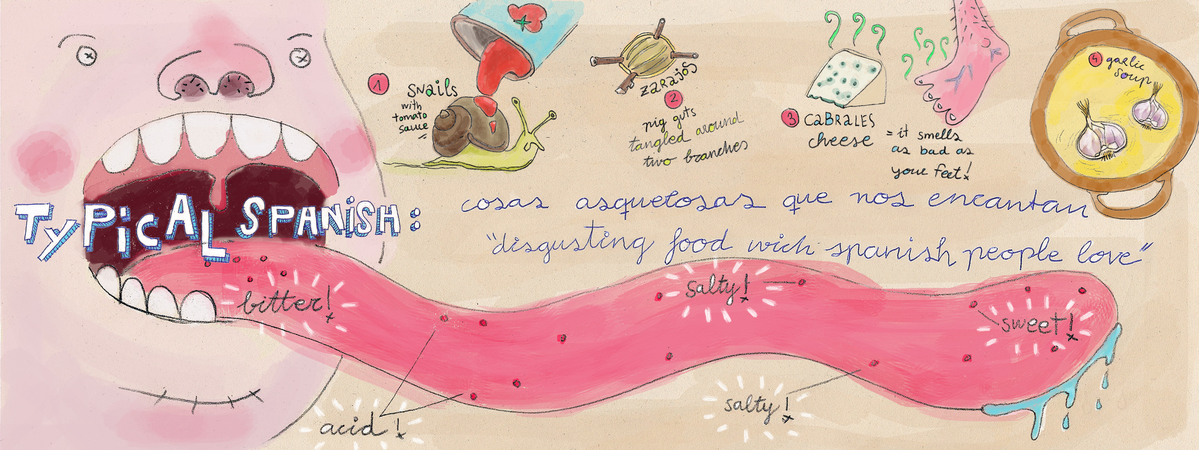 TYPICAL SPANISH:
cosas asquetosas que nos encantan
"disgusting food wich spanish people love"
1
snails
with
tomato
sauce
zarajos
2
pig guts
tangled around
two branches
3 CABRALES
cheese
= it smells
as bad as
your feet!
4 garlic
soup
bitter!
acid!
salty!
salty!
sweet!